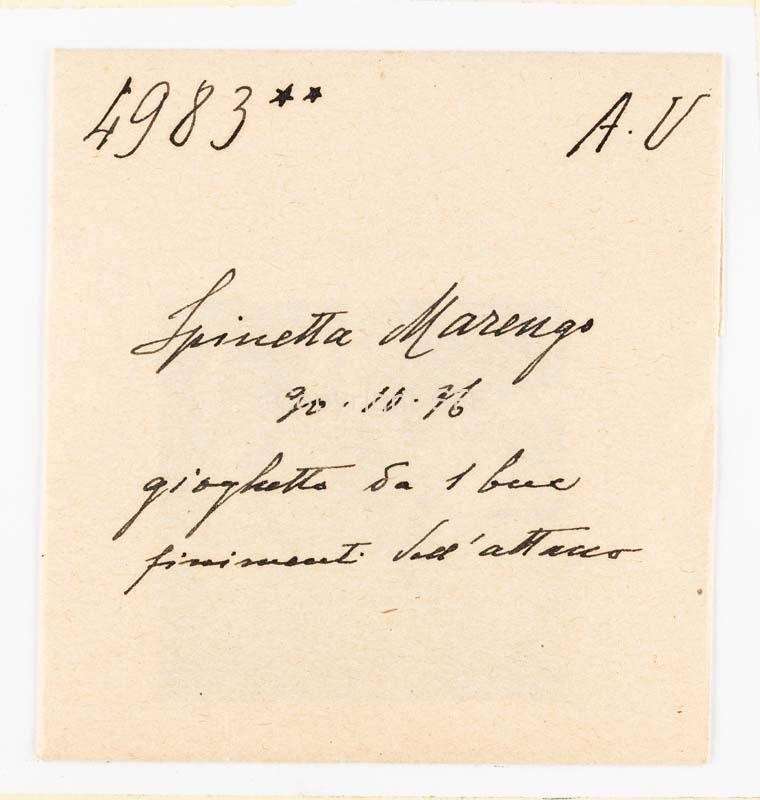 4983** A.V
Spinetta Marengo
gioghetto da 1 bue
finimenti dell'attacco